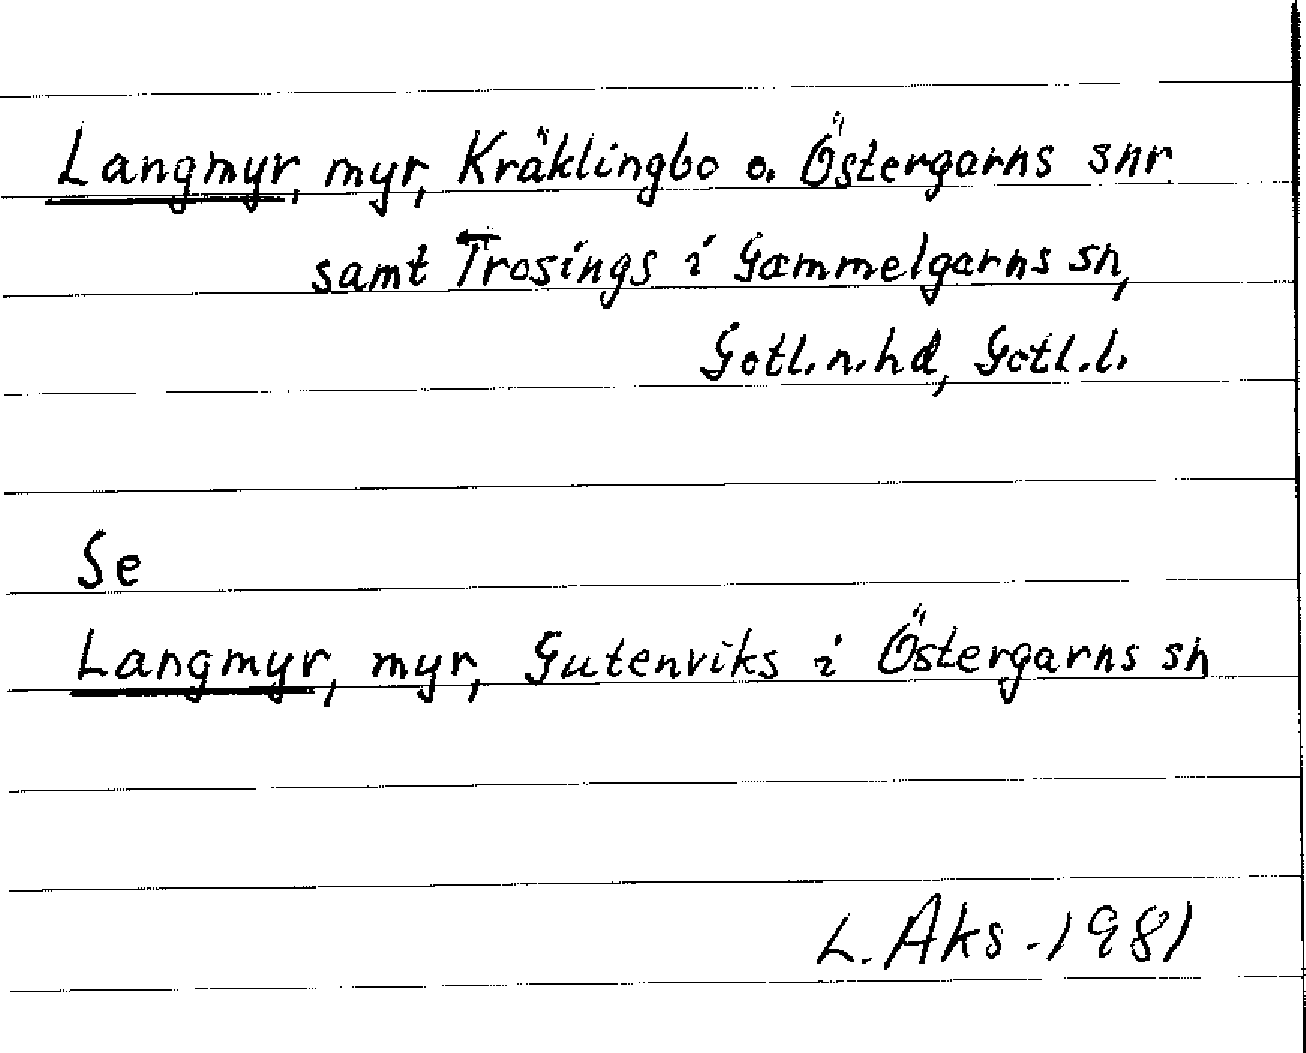 Langmyr, myr, Kräklingbo o. Östergarns snr
samt Trosings i Gammelgarns sn,
Gotl. n. hd, Gotl. l.
Se
Langmyr, myr, Gutenviks i Östergarns sn
L. Aks - 1981